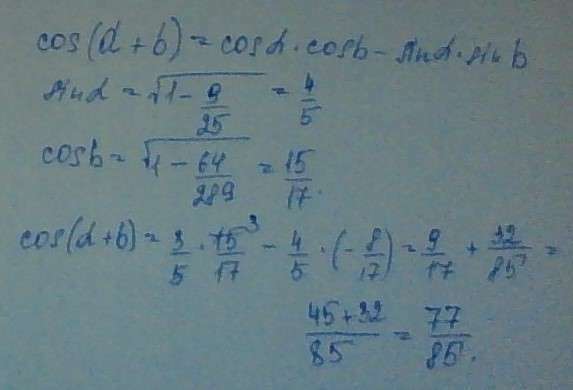 cos(α + b) = cosα · cosb − sinα · sinb
sinα = √(1 − 9/25) = 4/5
cosb = √(1 − 64/289) = 15/17.
cos(α + b) = 3/5 · 15³/17 − 4/5 · (−8/17) = 9/17 + 32/85 =
(45 + 32)/85 = 77/85.